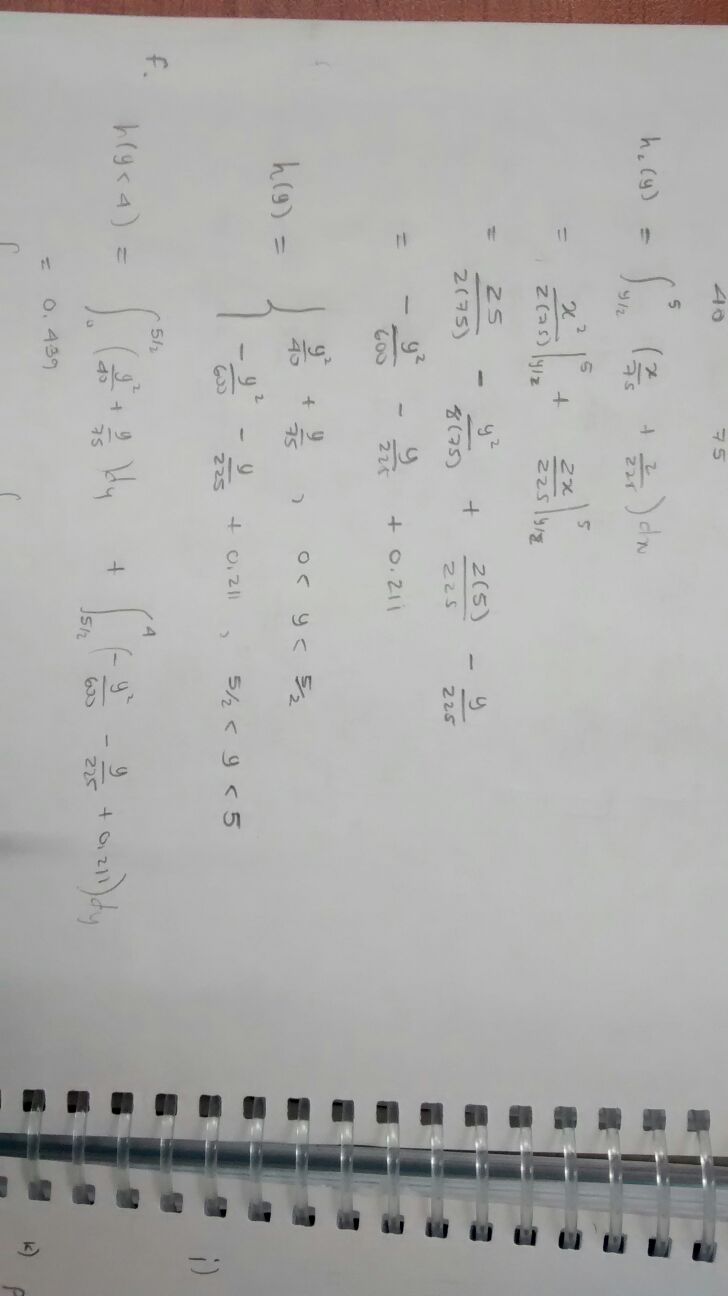 40 75
h₂(y) = ∫_{y/2}^{5} (x/75 + 2/225) dx
= x²/2(75) |_{y/2}^{5} + 2x/225 |_{y/2}^{5}
= 25/2(75) - y²/8(75) + 2(5)/225 - y/225
= - y²/600 - y/225 + 0.211
h(y) = { y²/40 + y/75 , 0 < y < 5/2
- y²/600 - y/225 + 0.211 , 5/2 < y < 5
f.
h(y < 4) = ∫_{0}^{5/2} (y²/40 + y/75) dy + ∫_{5/2}^{4} (- y²/600 - y/225 + 0.211) dy
= 0.439
i)
k)